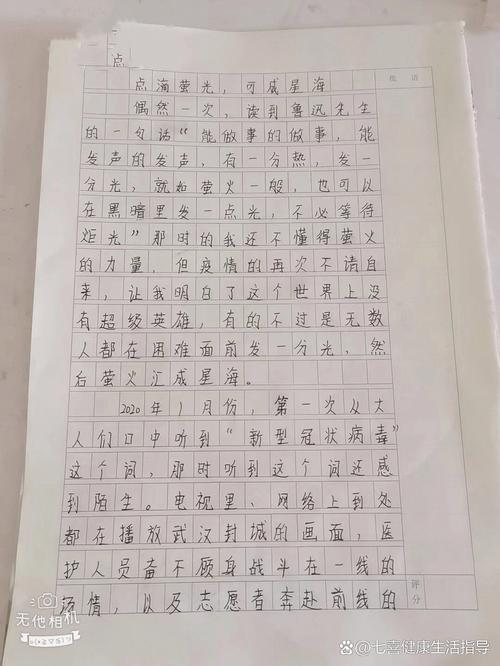 点
批 语
点滴萤光，可成星海
偶然一次，读到鲁迅先生
的一句话“能做事的做事，能
发声的发声，有一分热，发一
分光，就如萤火一般，也可以
在黑暗里发一点光，不必等待
炬光”那时的我还不懂得萤火
的力量，但疫情的再次不请自
来，让我明白了这个世界上没
有超级英雄，有的不过是无数
人都在困难面前发一分光，然
后萤火汇成星海。
2020年1月份，第一次从大
人们口中听到“新型冠状病毒”
这个词，那时听到这个词还感
到陌生。电视里、网络上到处
都在播放武汉封城的画面，医
护人员奋不顾身战斗在一线的
情，以及志愿者奔赴前线的
评分
无他相机
@七喜健康生活指导